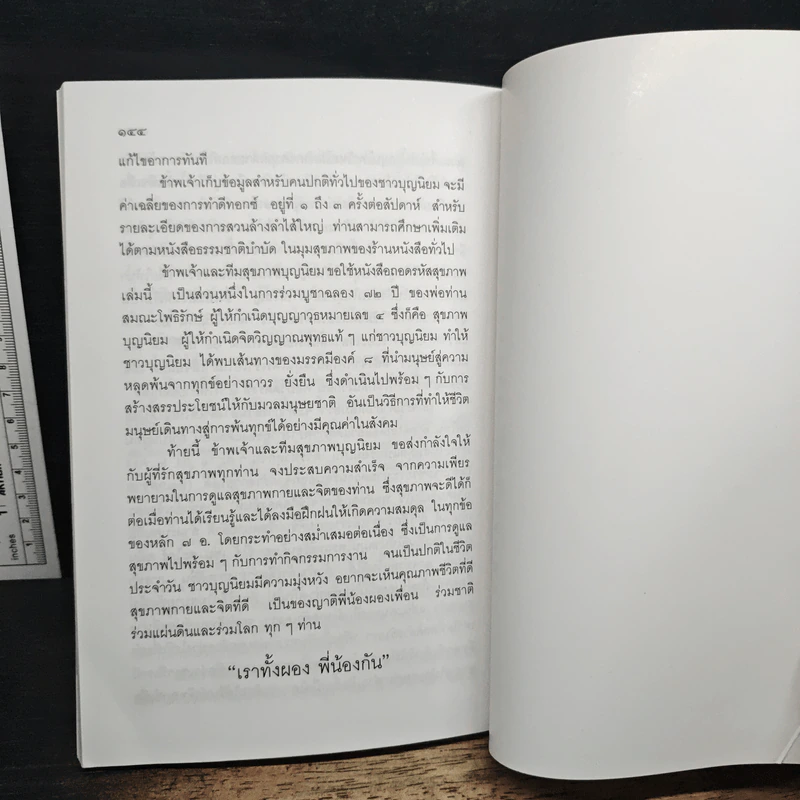 ๑๔๔
แก้ไขอาการทันที
ข้าพเจ้าเก็บข้อมูลสำหรับคนปกติทั่วไปของชาวบุญนิยม จะมี
ค่าเฉลี่ยของการทำดีทอกซ์ อยู่ที่ ๑ ถึง ๓ ครั้งต่อสัปดาห์ สำหรับ
รายละเอียดของการสวนล้างลำไส้ใหญ่ ท่านสามารถศึกษาเพิ่มเติม
ได้ตามหนังสือธรรมชาติบำบัด ในมุมสุขภาพของร้านหนังสือทั่วไป
ข้าพเจ้าและทีมสุขภาพบุญนิยม ขอใช้หนังสือถอดรหัสสุขภาพ
เล่มนี้ เป็นส่วนหนึ่งในการร่วมบูชาฉลอง ๗๒ ปี ของพ่อท่าน
สมณะโพธิรักษ์ ผู้ให้กำเนิดบุญญาวุธหมายเลข ๔ ซึ่งก็คือ สุขภาพ
บุญนิยม ผู้ให้กำเนิดจิตวิญญาณพุทธแท้ ๆ แก่ชาวบุญนิยม ทำให้
ชาวบุญนิยม ได้พบเส้นทางของมรรคมีองค์ ๘ ที่นำมนุษย์สู่ความ
หลุดพ้นจากทุกข์อย่างถาวร ยั่งยืน ซึ่งดำเนินไปพร้อม ๆ กับการ
สร้างสรรประโยชน์ให้กับมวลมนุษยชาติ อันเป็นวิธีการที่ทำให้ชีวิต
มนุษย์เดินทางสู่การพ้นทุกข์ได้อย่างมีคุณค่าในสังคม
ท้ายนี้ ข้าพเจ้าและทีมสุขภาพบุญนิยม ขอส่งกำลังใจให้
กับผู้ที่รักสุขภาพทุกท่าน จงประสบความสำเร็จ จากความเพียร
พยายามในการดูแลสุขภาพกายและจิตของท่าน ซึ่งสุขภาพจะดีได้ก็
ต่อเมื่อท่านได้เรียนรู้และได้ลงมือฝึกฝนให้เกิดความสมดุล ในทุกข้อ
ของหลัก ๗ อ. โดยกระทำอย่างสม่ำเสมอต่อเนื่อง ซึ่งเป็นการดูแล
สุขภาพไปพร้อม ๆ กับการทำกิจกรรมการงาน จนเป็นปกติในชีวิต
ประจำวัน ชาวบุญนิยมมีความมุ่งหวัง อยากจะเห็นคุณภาพชีวิตที่ดี
สุขภาพกายและจิตที่ดี เป็นของญาติพี่น้องผองเพื่อน ร่วมชาติ
ร่วมแผ่นดินและร่วมโลก ทุก ๆ ท่าน
“เราทั้งผอง พี่น้องกัน”
inches
1
2
3
4
5
6
7